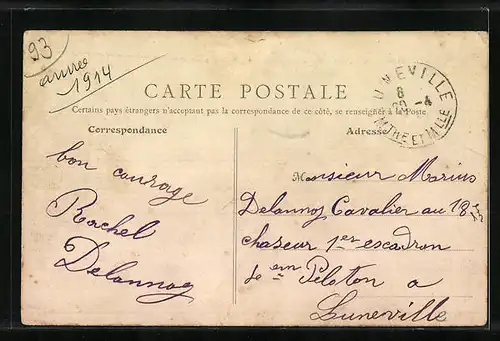 93
année
1914
CARTE POSTALE
Certains pays étrangers n'acceptant pas la correspondance de ce côté, se renseigner à la Poste
Correspondance
Adresse
UNEVILLE
6
20 -4
MTHE ET M LLE
bon courage
Rachel
Delannoy
Monsieur Marius
Delannoy Cavalier au 18 em
chaseur 1er escadron
4e em Peloton a
Luneville